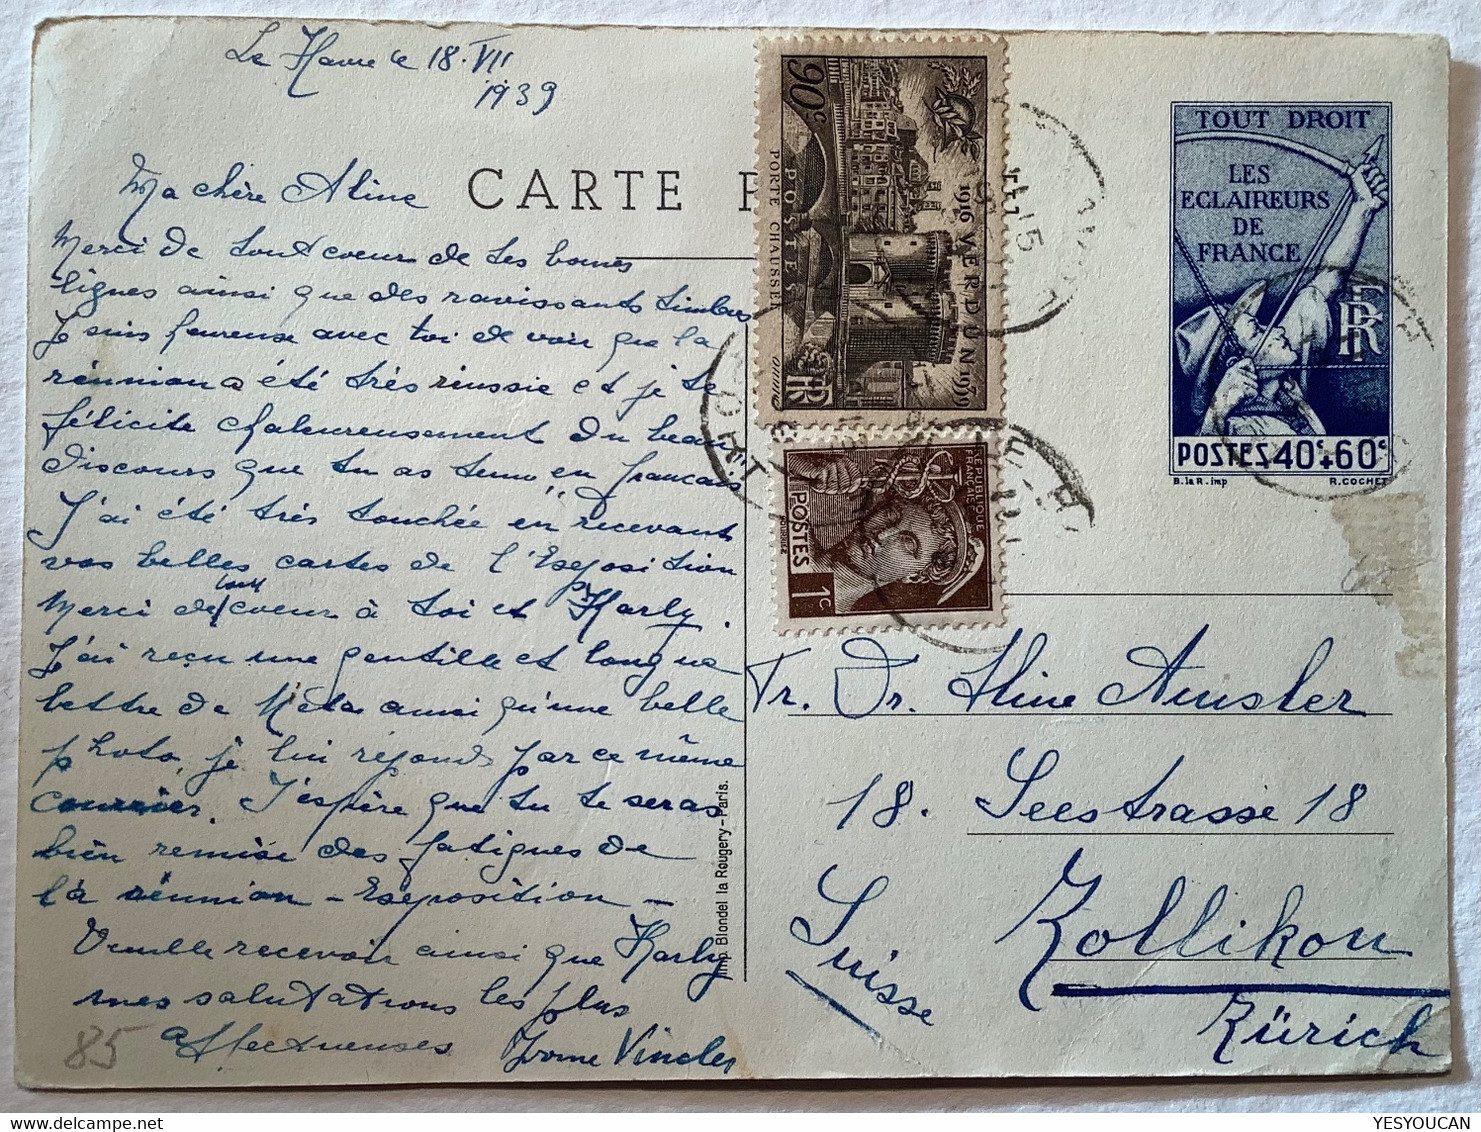 Le Havre le 18.VII
1939
CARTE P
Ma chère Aline
Merci de tout coeur de tes bonnes
lignes ainsi que des ravissants timbres
Je suis heureuse avec toi de voir que la
réunion a été très réussie et je te
félicite chaleureusement du beau
discours que tu as tenu "en français"
J'ai été très touchée en recevant
vos belles cartes de l'Exposition
Merci de tout coeur à toi et Karly.
J'ai reçu une gentille et longue
lettre de Meta ainsi qu'une belle
photo, je lui réponds par ce même
courrier. J'espère que tu te seras
bien remise des fatigues de
la réunion - Exposition -
Veuille recevoir ainsi que Karly
mes salutations les plus
affectueuses Yvonne
85
Imp. Blondel la Rougery - Paris.
90c
PORTE CHAUSSEE
POSTES
1916 VERDUN 1939
RF
REPUBLIQUE
FRANCAISE
POSTES
1c
TOUT DROIT
LES
ECLAIREURS
DE
FRANCE
RF
POSTES 40c+60c
B. la R. imp R. COCHET
Fr. Dr. Aline Amsler
18. Seestrasse 18
Zollikon
Suisse
Zürich
YESYOUCAN